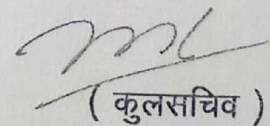 ( कुलसचिव )